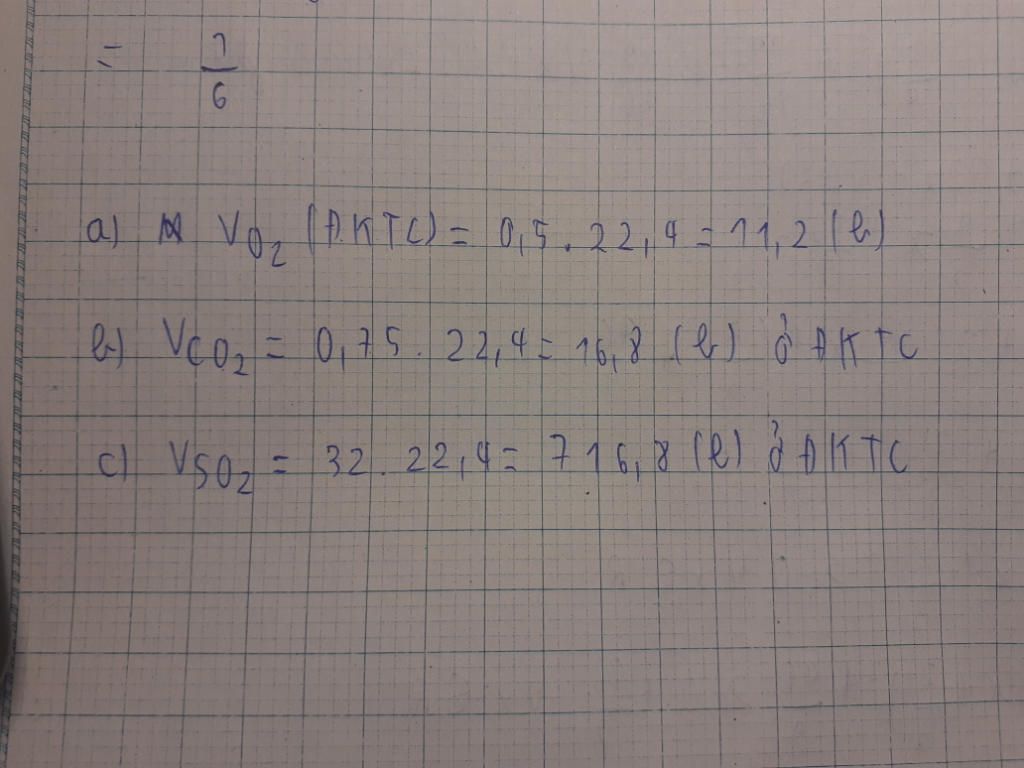 = 7/6
a) V O₂ (ĐKTC) = 0,5 . 22,4 = 11,2 (l)
b) V CO₂ = 0,75 . 22,4 = 16,8 (l) ở ĐKTC
c) V SO₂ = 32 . 22,4 = 716,8 (l) ở ĐKTC